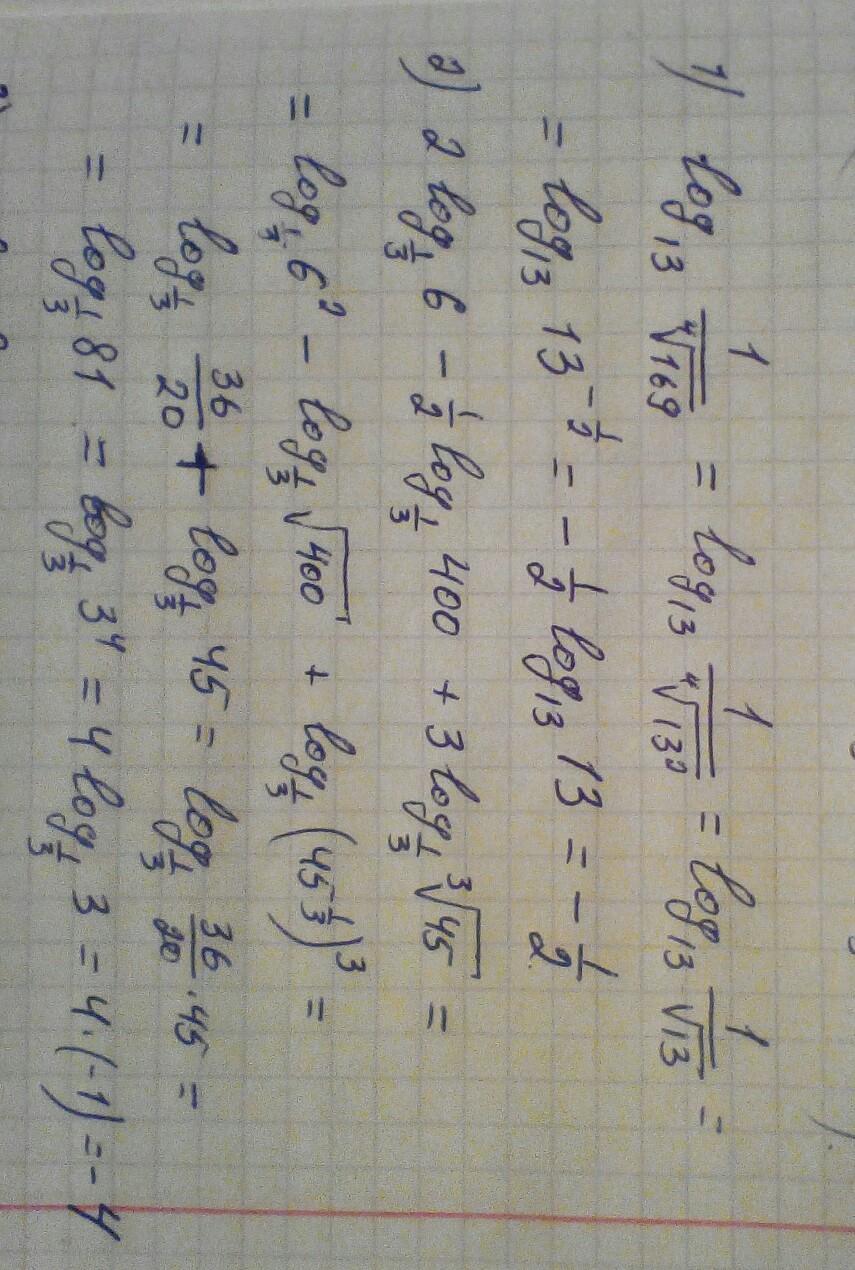 1) log₁₃ 1/⁴√169 = log₁₃ 1/⁴√13² = log₁₃ 1/√13 =
= log₁₃ 13^(-1/2) = -1/2 log₁₃ 13 = -1/2
2) 2 log_(1/3) 6 - 1/2 log_(1/3) 400 + 3 log_(1/3) ³√45 =
= log_(1/3) 6² - log_(1/3) √400 + log_(1/3) (45^(1/3))³ =
= log_(1/3) 36/20 + log_(1/3) 45 = log_(1/3) 36/20 · 45 =
= log_(1/3) 81 = log_(1/3) 3⁴ = 4 log_(1/3) 3 = 4·(-1) = -4